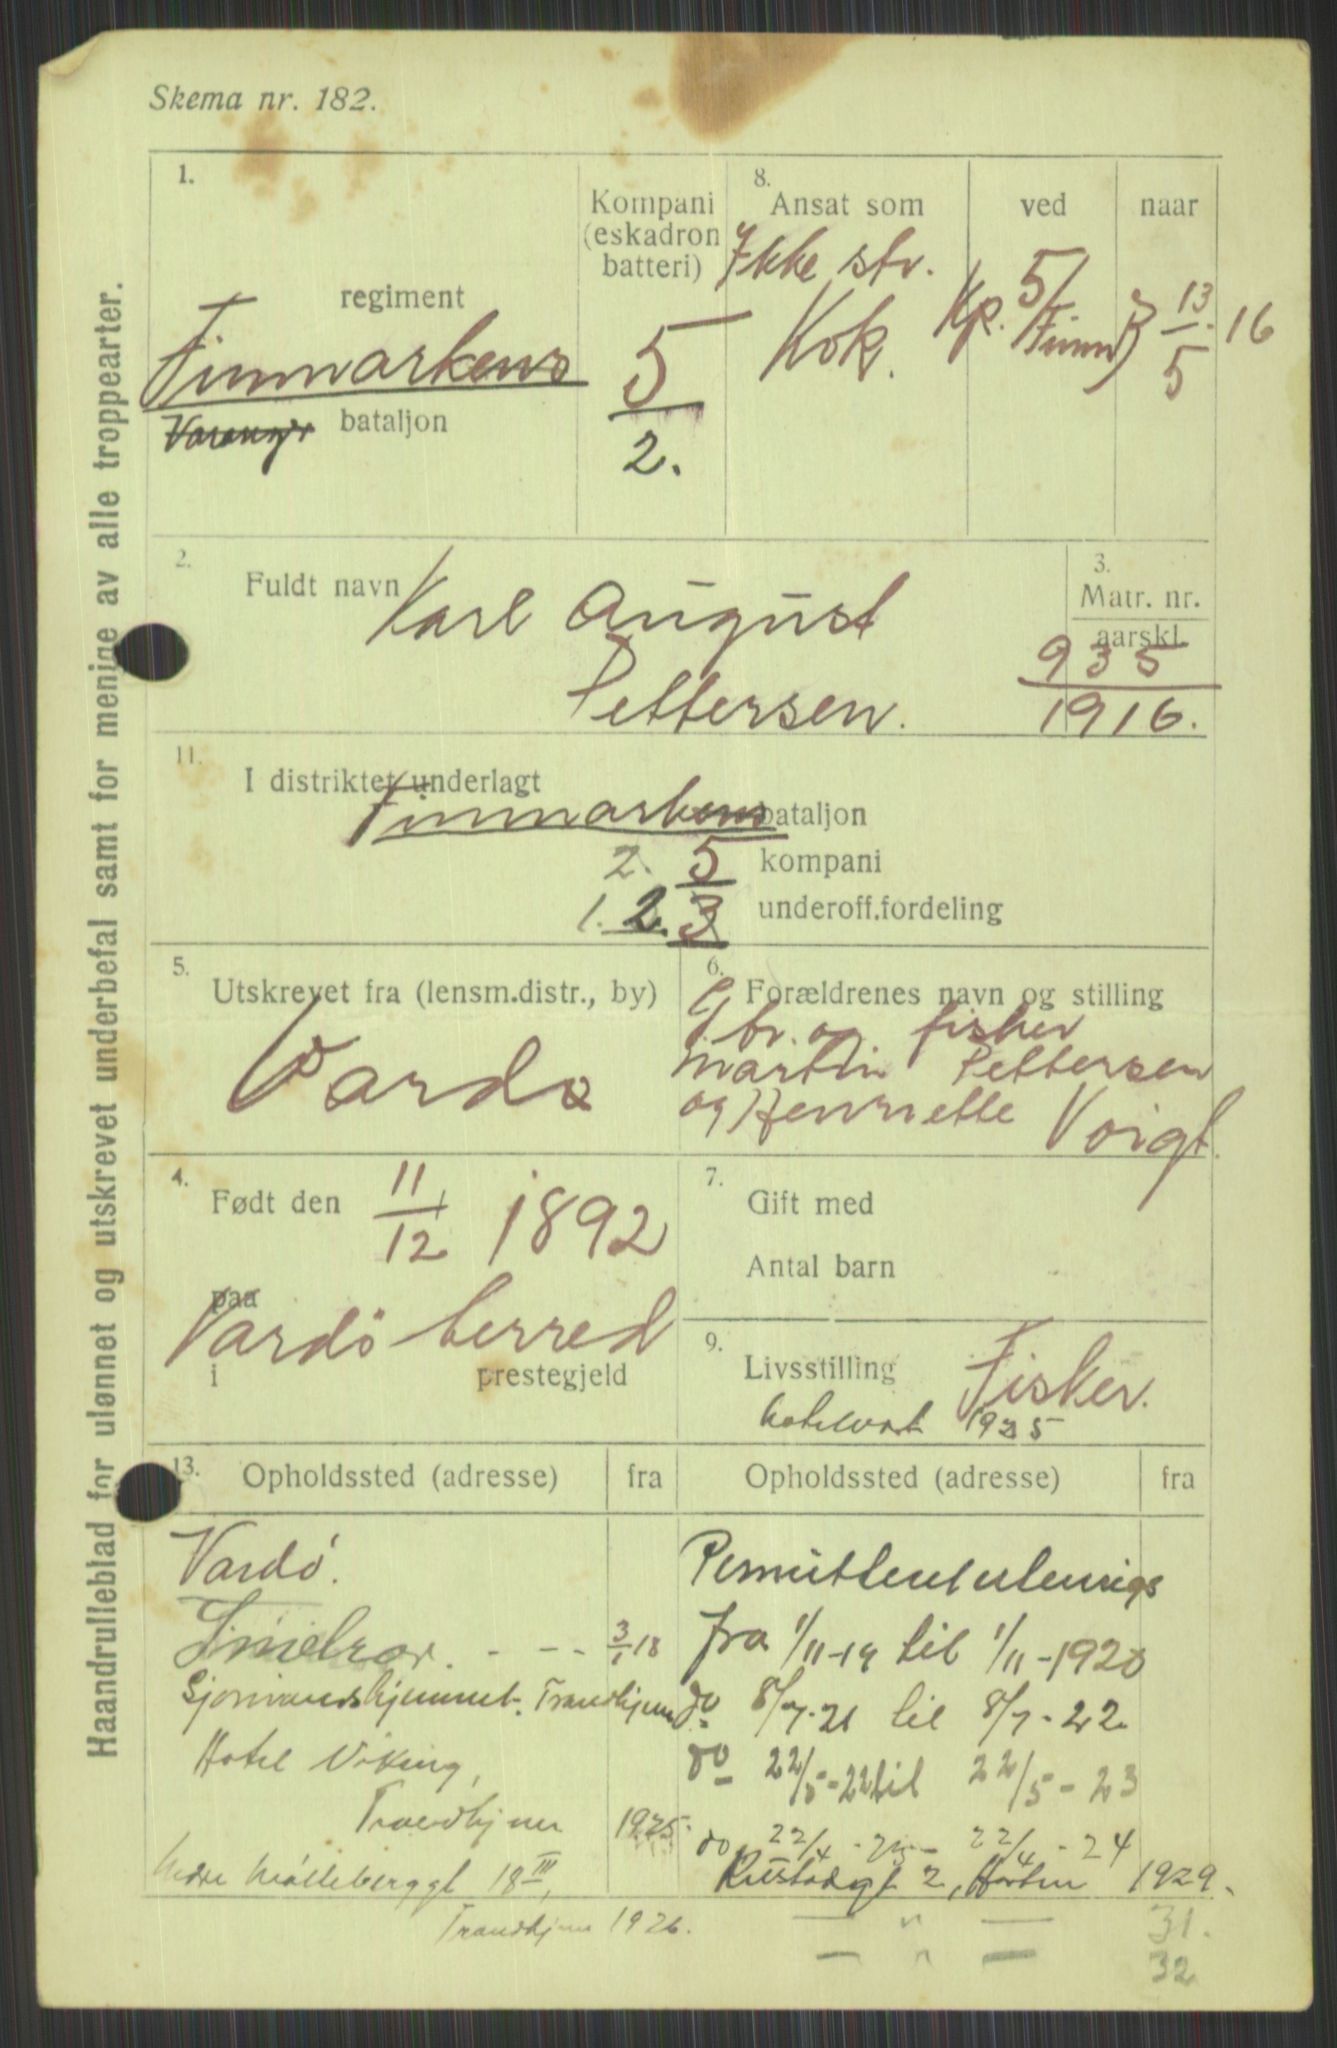 Skema nr. 182.
Haandrulleblad for ulønnet og utskrevet underbefal samt for menige av alle troppearter.
1.
regiment
Finmarkens
Varanger bataljon
Kompani
(eskadron
batteri)
5
2.
8.
Ansat som
Ikke str.
Kok.
ved
Kp. 5/Finm
naar
13/5 16
2.
Fuldt navn Karl August
Pettersen.
3.
Matr. nr.
aarskl.
935
1916.
11.
I distriktet underlagt
Finmarkens bataljon
2. 5 kompani
1. 2. 3 underoff.fordeling
5.
Utskrevet fra (lensm.distr., by)
Vardø
6.
Forældrenes navn og stilling
Gbr. og fisker
Martin Pettersen
og Henriette Voigt.
4.
Født den 11/12 1892
paa
Vardö herred
i prestegjeld
7.
Gift med
Antal barn
9.
Livsstilling Fisker.
hotelvert 1925
13.
Opholdssted (adresse) fra
Vardö.
- - - 3/1 18
Sjømandshjemmet. Trondhjem
Hotel Viking,
Trondhjem 1925.
Nedre Mølleberggt 18 III,
Trondhjem 1926.
Opholdssted (adresse) fra
fra 1/11-19 til 1/11-1920
do 8/7-21 til 8/7-22
do 22/5-22 til 22/5-23
do 22/4-23- 22/4-24
2, Horten 1929.
— " — 31.
— " — 32